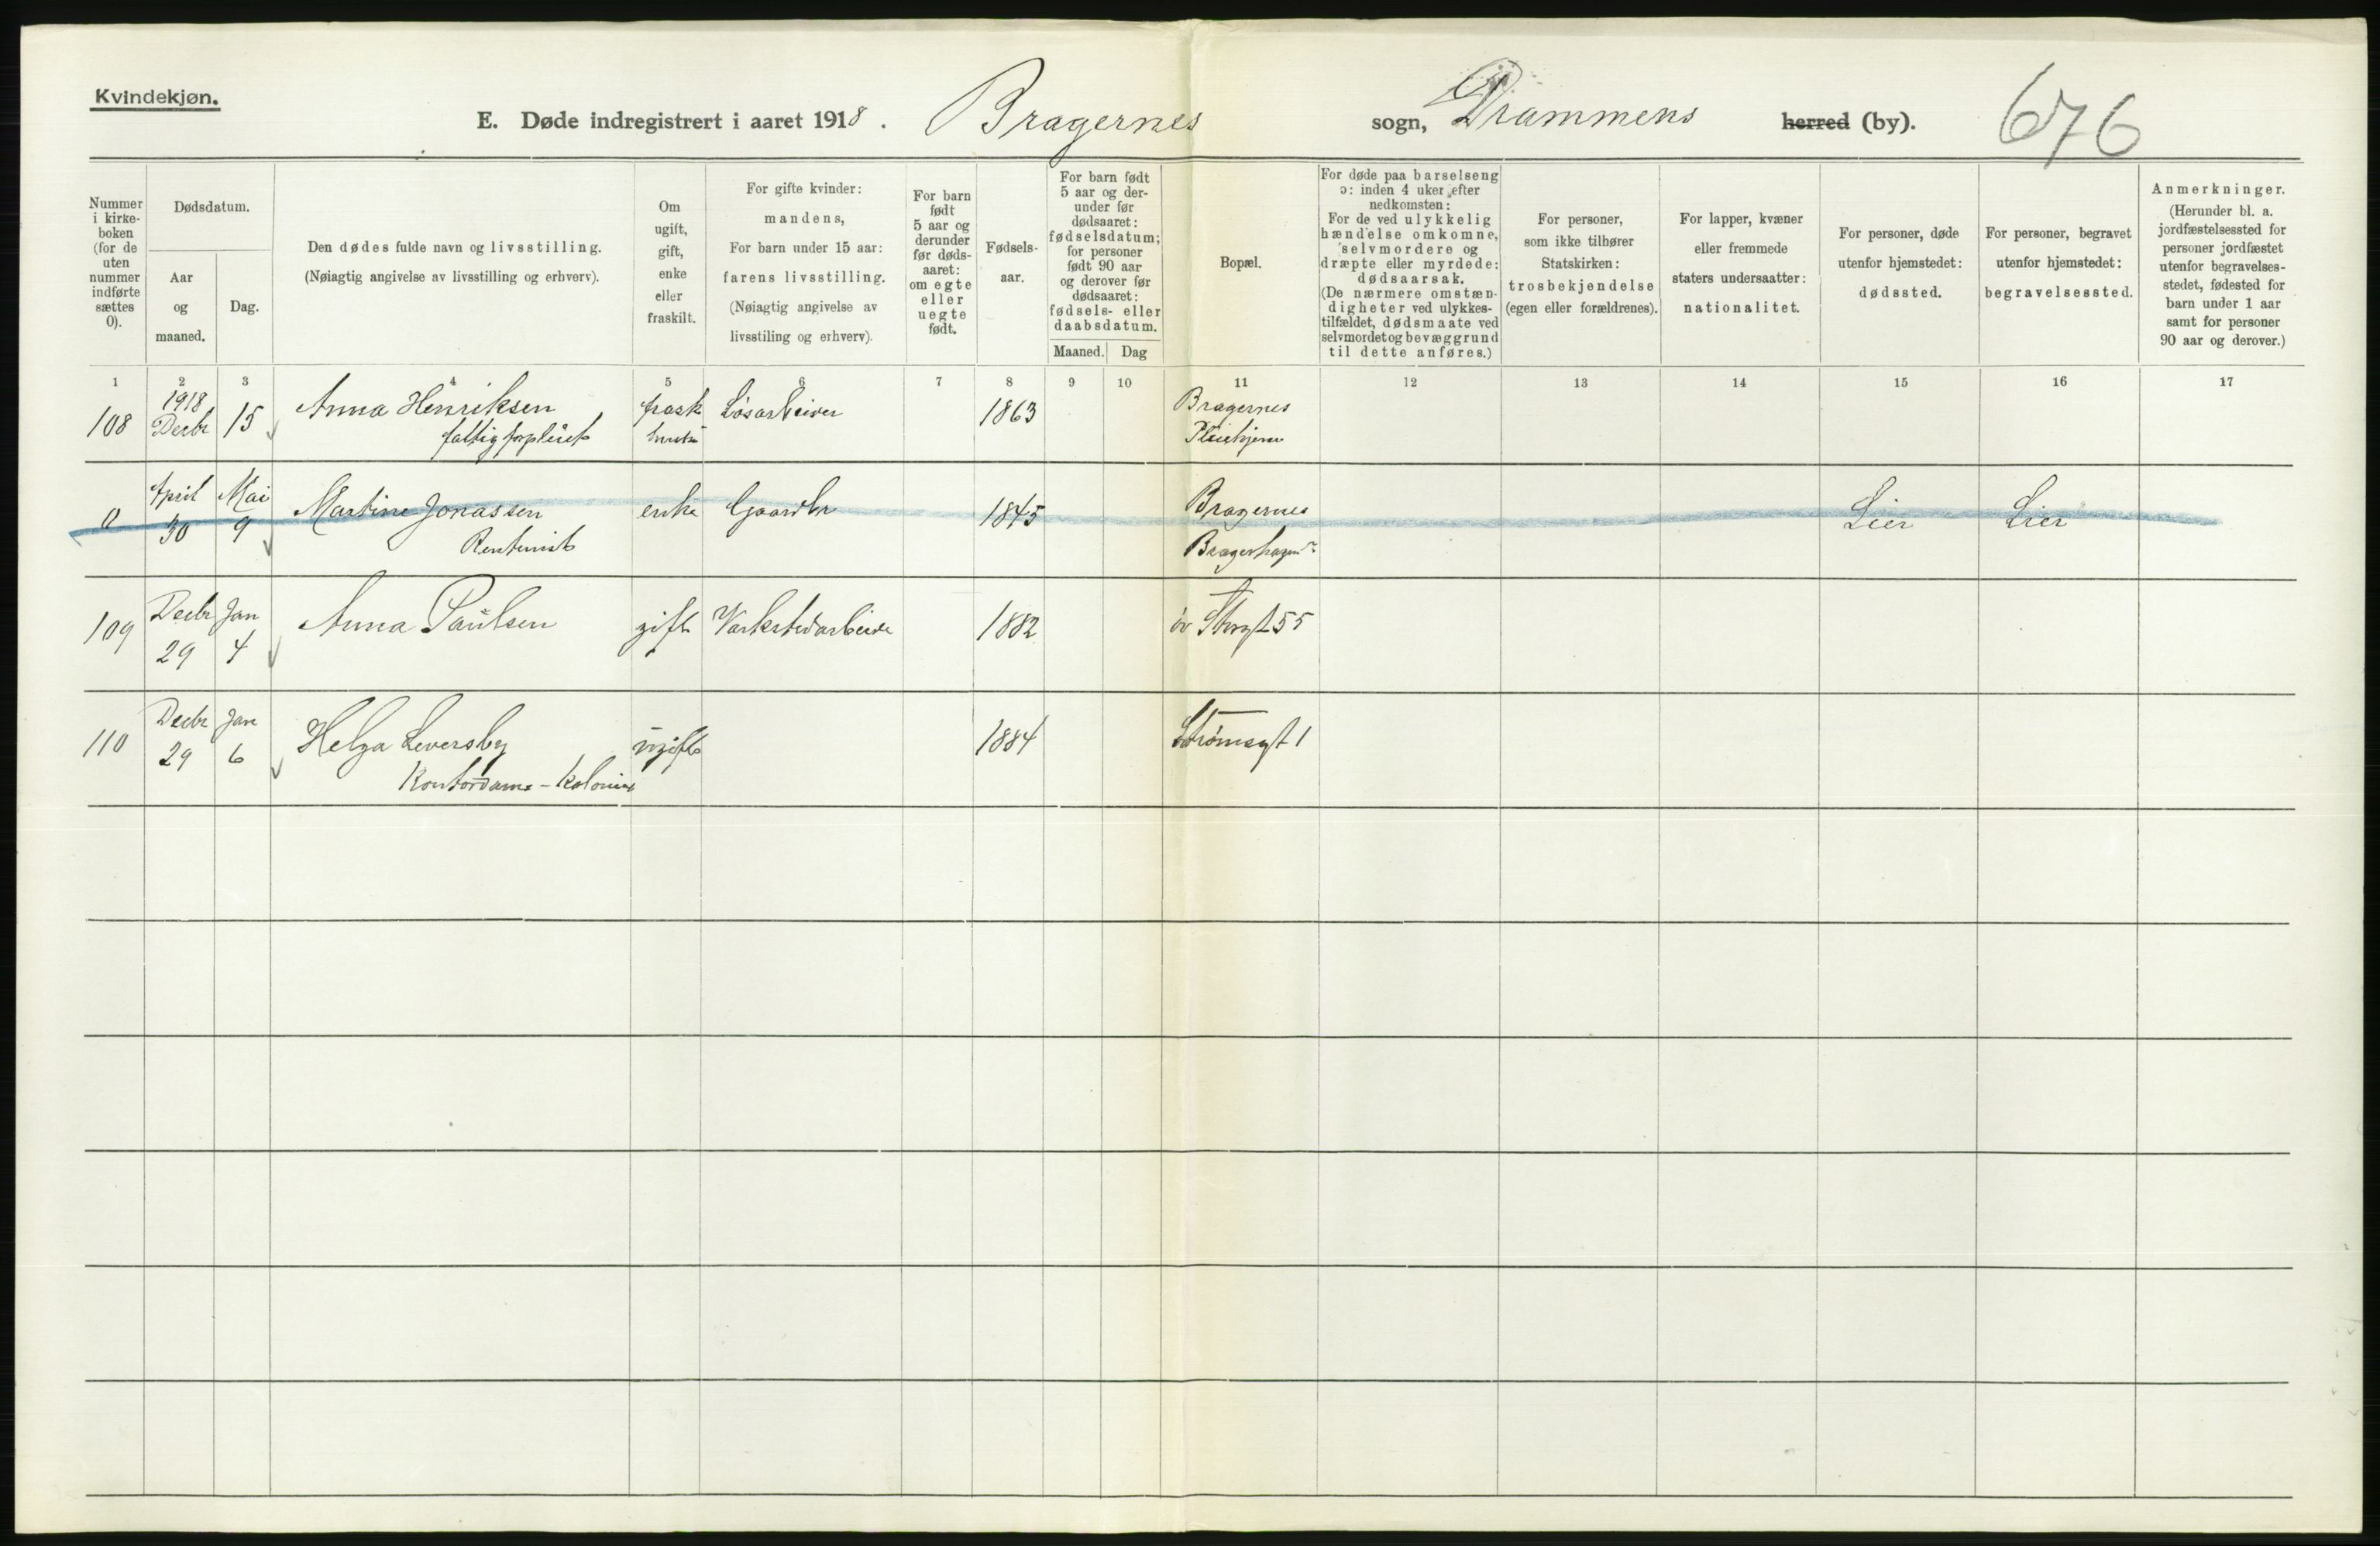 Kvindekjøn.
E. Døde indregistrert i aaret 1918. Bragernes sogn, Drammens herred (by). 676
Nummer i kirke-boken (for de uten nummer indførte sættes 0).
Dødsdatum.
Aar og maaned.
Dag.
Den dødes fulde navn og livsstilling.
(Nøiagtig angivelse av livsstilling og erhverv).
Om ugift, gift, enke eller fraskilt.
For gifte kvinder:
mandens,
For barn under 15 aar:
farens livsstilling.
(Nøiagtig angivelse av
livsstiling og erhverv).
For barn født 5 aar og derunder før døds-aaret: om egte eller uegte født.
Fødsels-aar.
For barn født 5 aar og der-under før dødsaaret: fødselsdatum; for personer født 90 aar og derover før dødsaaret: fødsels- eller daabsdatum.
Maaned. Dag
Bopæl.
For døde paa barselseng ɔ: inden 4 uker efter nedkomsten:
For de ved ulykkelig hændelse omkomne, selvmordere og dræpte eller myrdede: dødsaarsak.
(De nærmere omstæn-digheter ved ulykkes-tilfældet, dødsmaate ved selvmordet og bevæggrund til dette anføres.)
For personer, som ikke tilhører Statskirken: trosbekjendelse (egen eller forældrenes).
For lapper, kvæner eller fremmede staters undersaatter: nationalitet.
For personer, døde utenfor hjemstedet: dødssted.
For personer, begravet utenfor hjemstedet: begravelsessted.
Anmerkninger.
(Herunder bl. a. jordfæstelsessted for personer jordfæstet utenfor begravelses-stedet, fødested for barn under 1 aar samt for personer 90 aar og derover.)
1 2 3 4 5 6 7 8 9 10 11 12 13 14 15 16 17
108 1918 Decbr 15 Anna Henriksen frask Løsarbeider 1863 Bragernes
fattigforpleiet hustru Pleiehjem
0 April 30 Mai 9 Martine Jonassen enke Gaardbr 1845 Bragernes Lier Lier
Rentenist
109 Decbr 29 Jan 4 Anna Paulsen gift Verkstedarbeide 1882 øv Storgt 55
110 Decbr 29 Jan 6 Helga Leversby ugift 1884 Strømsgt 1
Kontordame - Kolonial